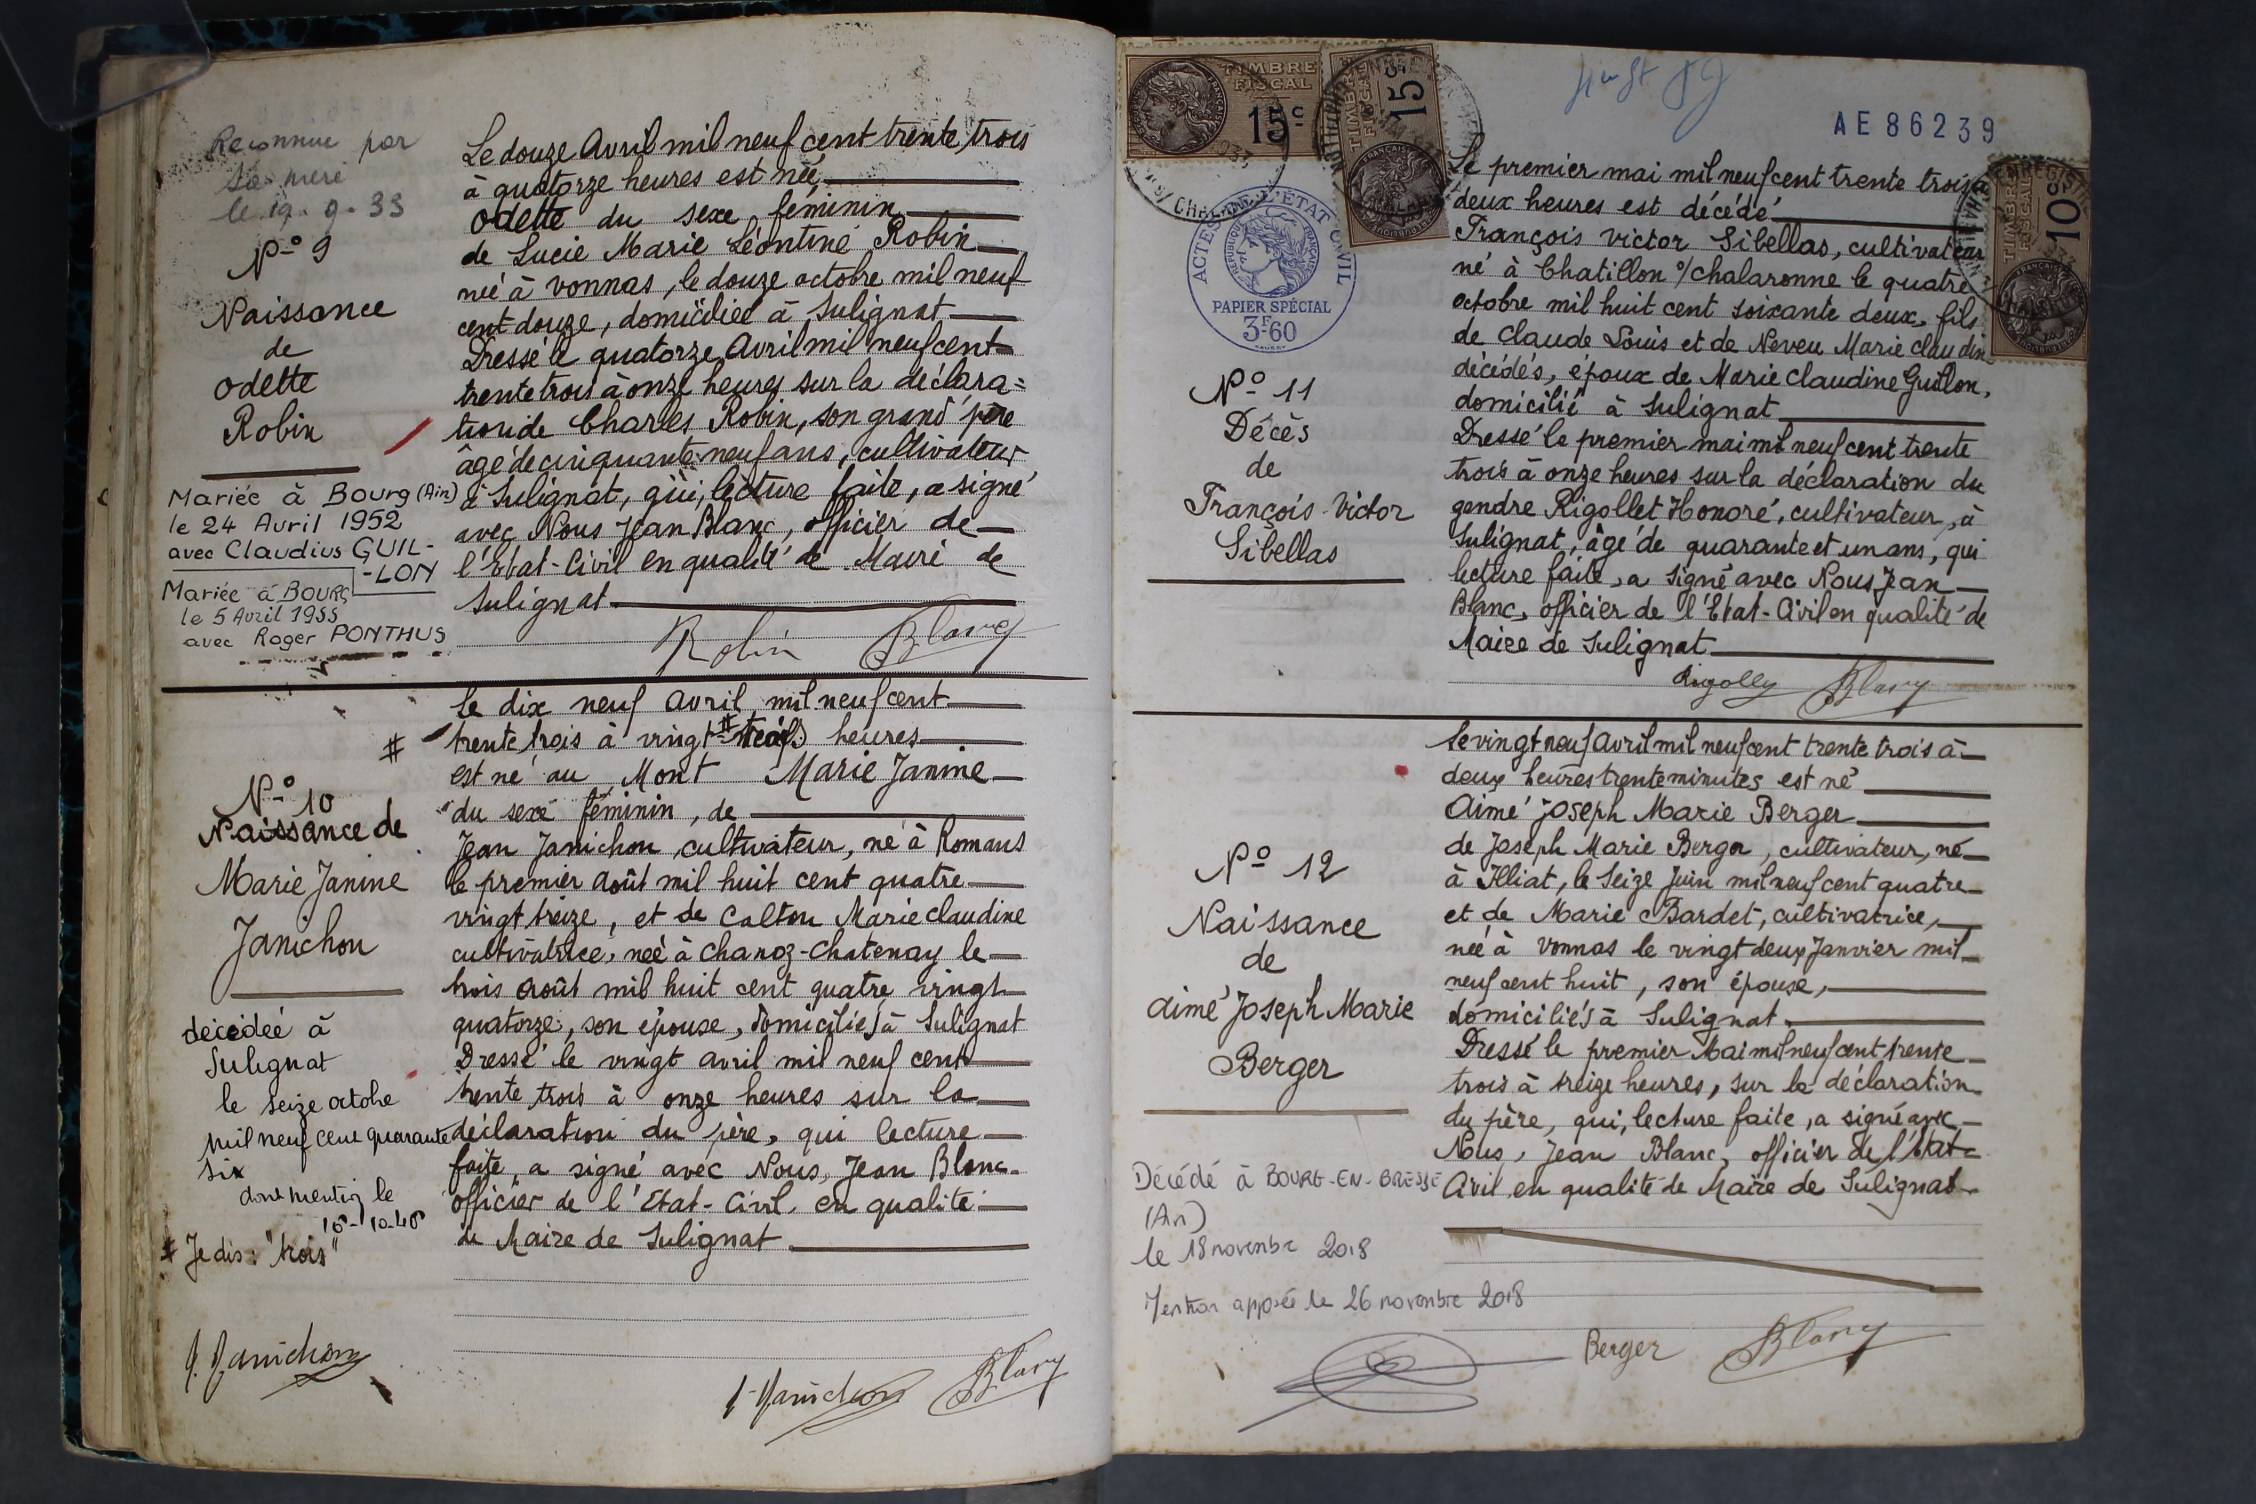 Reconnue par
sa mère
le 19.9.33
N° 9
Naissance
de
Odette
Robin
Mariée à Bourg (Ain)
le 24 Avril 1952
avec Claudius GUIL-
-LON
Mariée à BOURG
le 5 Avril 1955
avec Roger PONTHUS
Le douze Avril mil neuf cent trente trois
à quatorze heures est née
Odette du sexe féminin
de Lucie Marie Léontine Robin
née à Vonnas, le douze octobre mil neuf
cent douze, domiciliée à Sulignat
Dressé le quatorze Avril mil neuf cent
trente trois à onze heures sur la déclara=
tion de Charles Robin, son grand père
âgé de cinquante-neuf ans, cultivateur
à Sulignat, qui, lecture faite, a signé
avec Nous Jean Blanc, officier de
l'Etat-Civil en qualité de Maire de
Sulignat
Robin Blanc
#
N° 10
Naissance de
Marie Janine
Janichon
décédée à
Sulignat
le seize octobre
mil neuf cent quarante
six
dont mention le
16-10-46
# Je dis: "trois"
J. Janichon
Le dix neuf Avril mil neuf cent
trente trois à vingt # trois heures
est né au Mont Marie Janine
du sexe féminin, de
Jean Janichon cultivateur, né à Romans
le premier Août mil huit cent quatre
vingt treize, et de Calton Marie Claudine
cultivatrice, née à Chanoz-Chatenay le
trois Août mil huit cent quatre vingt
quatorze, son épouse, domiciliés à Sulignat
Dressé le vingt avril mil neuf cent
trente trois à onze heures sur la
déclaration du père, qui lecture
faite, a signé avec Nous, Jean Blanc
officier de l'Etat-Civil en qualité
de Maire de Sulignat
J. Janichon Blanc
TIMBRE
FISCAL
15c
TIMBRE
FISCAL
15c
AE 86239
TIMBRE
FISCAL
10c
ACTES DE L'ÉTAT CIVIL
RÉPUBLIQUE FRANÇAISE
PAPIER SPÉCIAL
3F60
N° 11
Décès
de
François Victor
Sibellas
Le premier mai mil neuf cent trente trois
deux heures est décédé
François Victor Sibellas, cultivateur
né à Chatillon s/ Chalaronne le quatre
octobre mil huit cent soixante deux, fils
de Claude Louis et de Neveu Marie Claudine
décédés, époux de Marie Claudine Guillon,
domicilié à Sulignat
Dressé le premier mai mil neuf cent trente
trois à onze heures sur la déclaration du
gendre Rigollet Honoré, cultivateur, à
Sulignat, âgé de quarante et un ans, qui
lecture faite, a signé avec Nous Jean
Blanc, officier de l'Etat-Civil en qualité de
Maire de Sulignat
Rigolly Blanc
N° 12
Naissance
de
Aimé Joseph Marie
Berger
Décédé à BOURG-EN-BRESSE
(Ain)
le 18 novembre 2018
Mention apposée le 26 novembre 2018
Le vingt neuf Avril mil neuf cent trente trois à
deux heures trente minutes est né
Aimé Joseph Marie Berger
de Joseph Marie Berger, cultivateur, né
à Illiat, le seize Juin mil neuf cent quatre
et de Marie Bardet, cultivatrice,
née à Vonnas le vingt deux Janvier mil
neuf cent huit, son épouse,
domiciliés à Sulignat
Dressé le premier Mai mil neuf cent trente
trois à treize heures, sur la déclaration
du père, qui, lecture faite, a signé avec
Nous, Jean Blanc, officier de l'Etat=
Civil en qualité de Maire de Sulignat
Berger Blanc